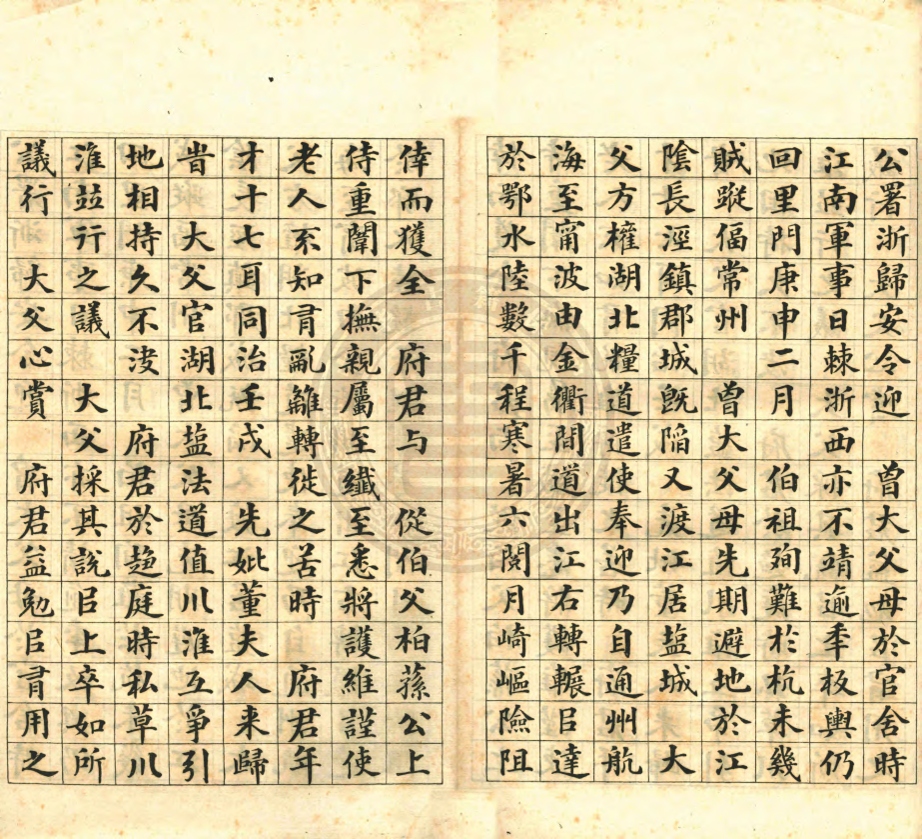 公署浙歸安令迎　曾大父母於官舍時
江南軍事日棘浙西亦不靖逾秊板輿仍
回里門庚申二月　伯祖殉難於杭未幾
賊蹤偪常州　曾大父母先期避地於江
陰長涇鎮郡城既陷又渡江居盐城　大
父方權湖北糧道遣使奉迎乃自通州航
海至甯波由金衢間道出江右轉輾㠯達
於鄂水陸數千程寒暑六閱月崎嶇險阻
倖而獲全　府君与　從伯父柏蓀公上
侍重闈下撫親屬至纖至悉將護維謹使
老人不知有亂離轉徙之苦時　府君年
才十七耳同治壬戌　先妣董夫人来歸
峕　大父官湖北盐法道值川淮互爭引
地相持久不決　府君於趨庭時私草川
淮竝行之議　大父採其説㠯上卒如所
議行　大父心賞　府君益勉㠯有用之